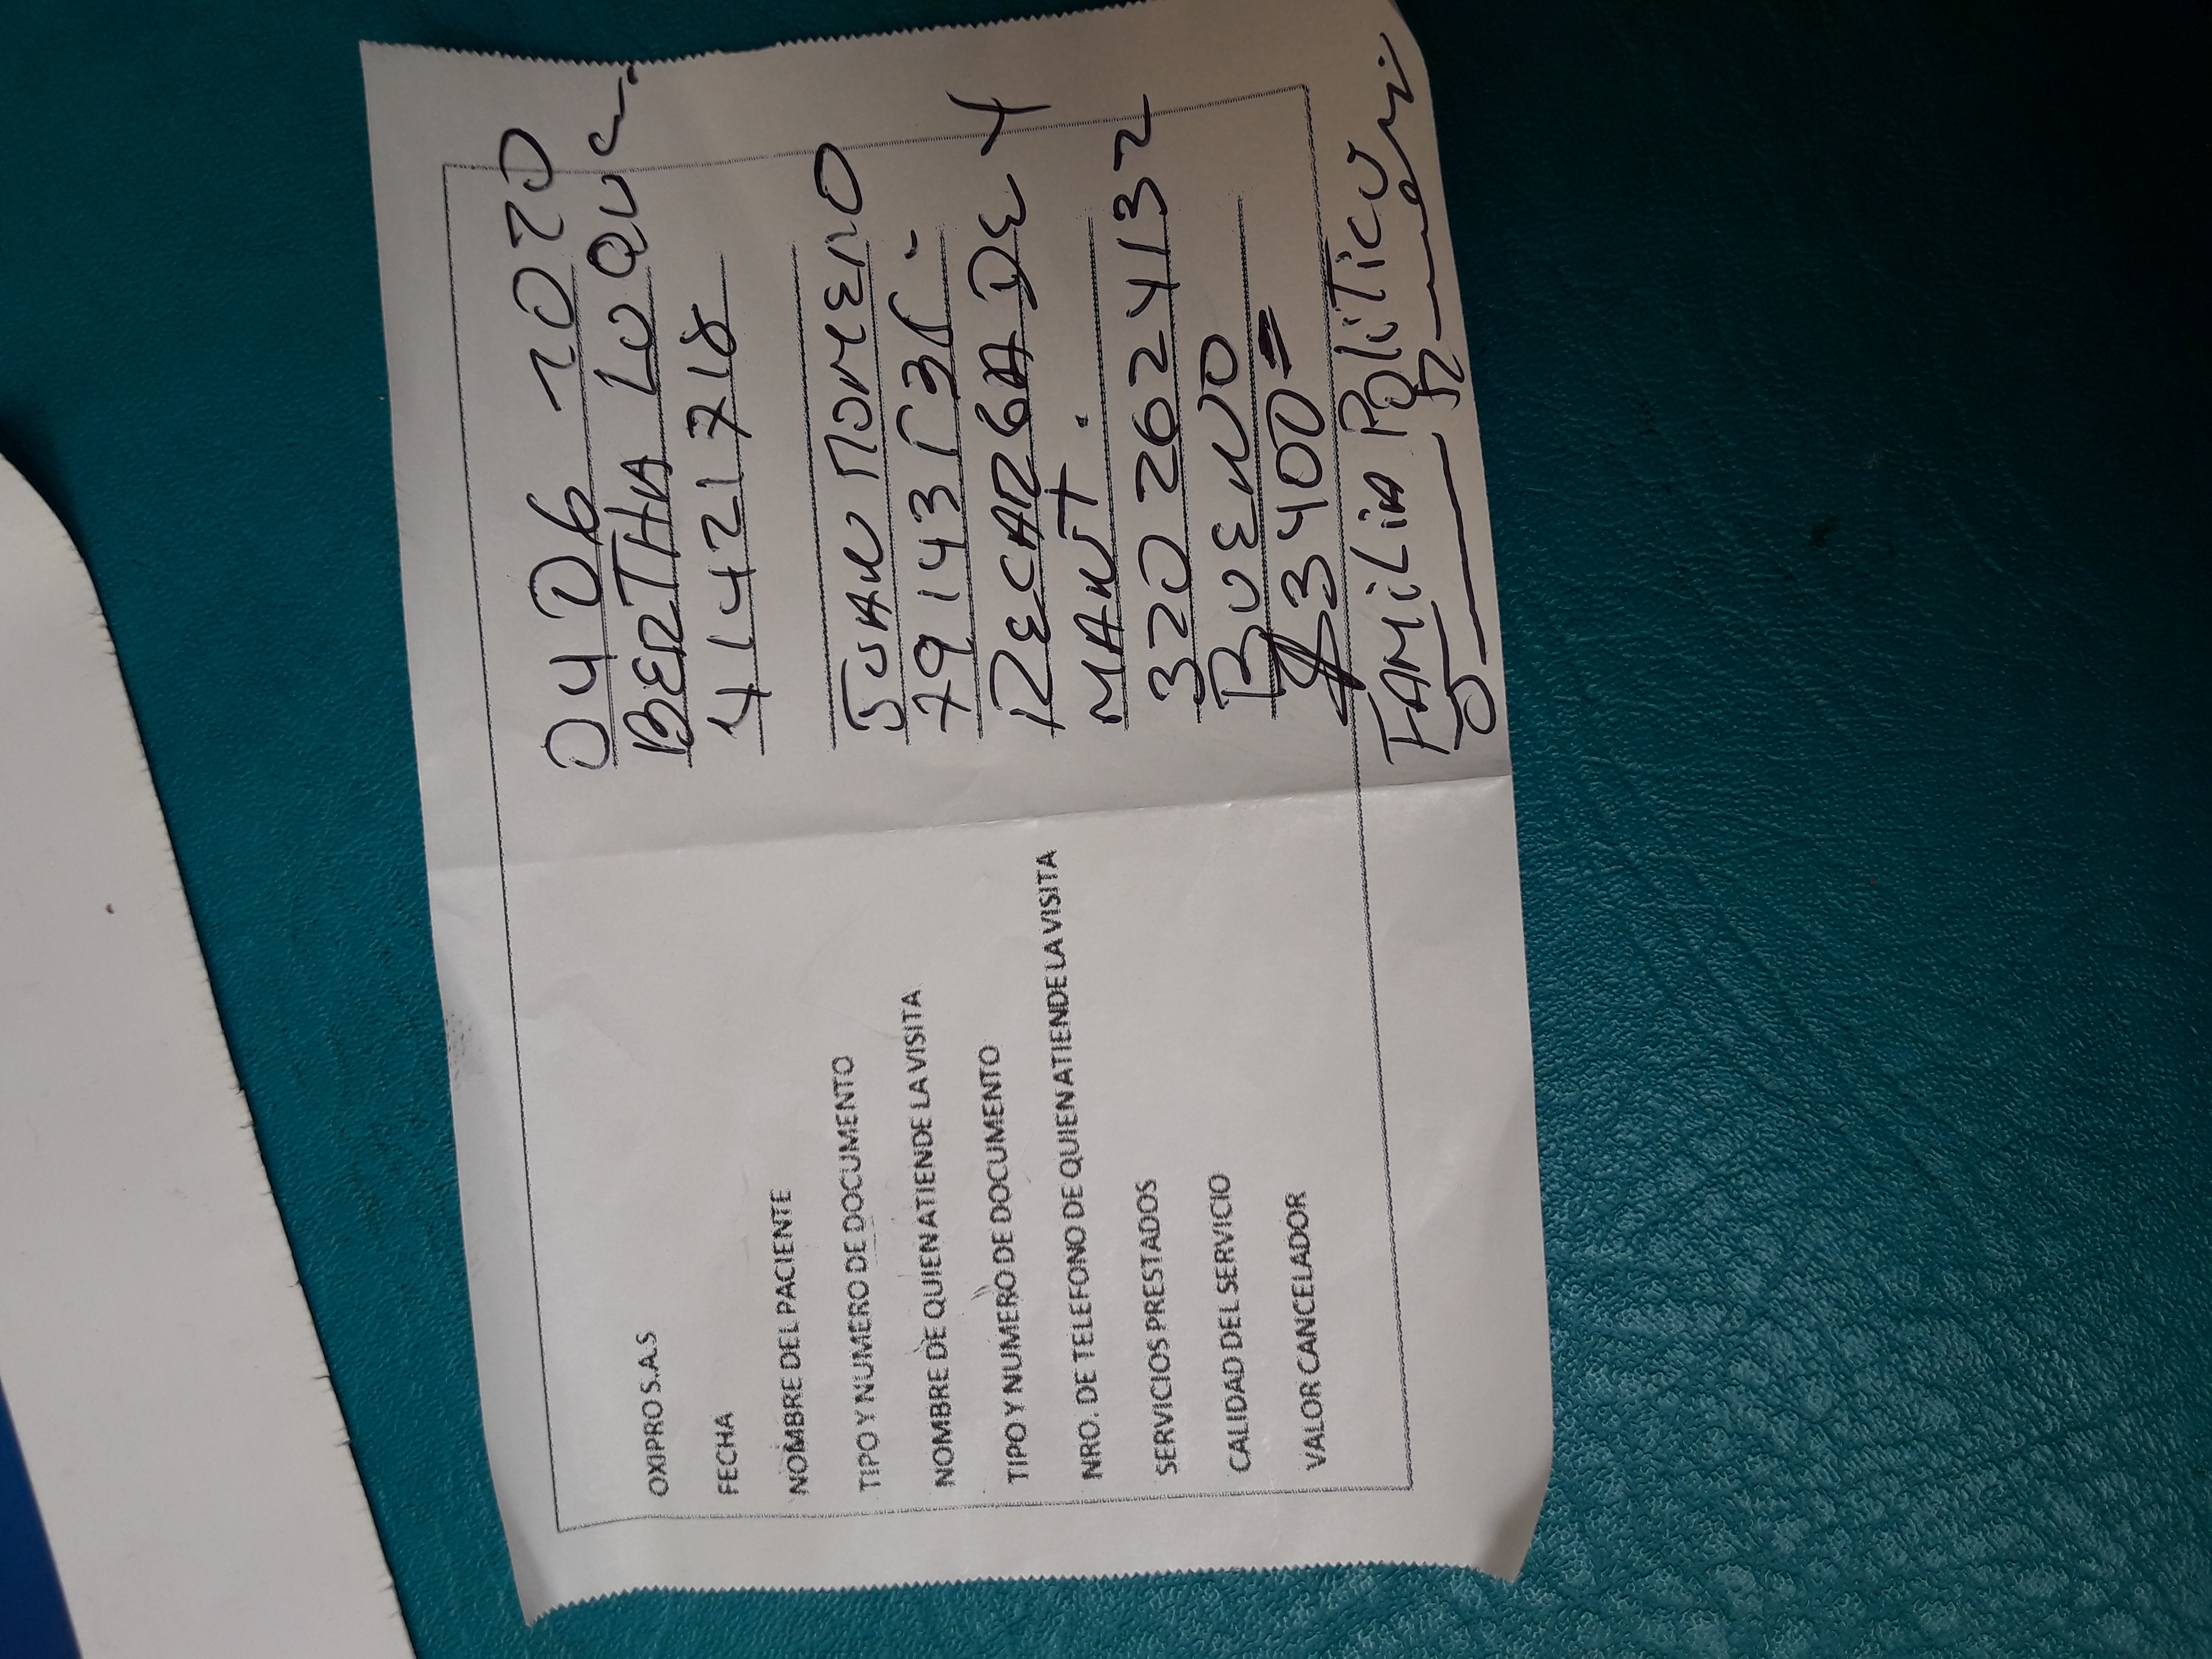 OXIPRO S.A.S 04 06 2020
FECHA BERTHA LUQUE
NOMBRE DEL PACIENTE 41421718
TIPO Y NUMERO DE DOCUMENTO
NOMBRE DE QUIEN ATIENDE LA VISITA JUAN ROMERO
TIPO Y NUMERO DE DOCUMENTO 79143535
NRO. DE TELEFONO DE QUIEN ATIENDE LA VISITA RECARGA DE Y
SERVICIOS PRESTADOS MANT.
CALIDAD DEL SERVICIO 320 2624132
VALOR CANCELADOR BUENO
$3400=
FAMILIA POLITICA